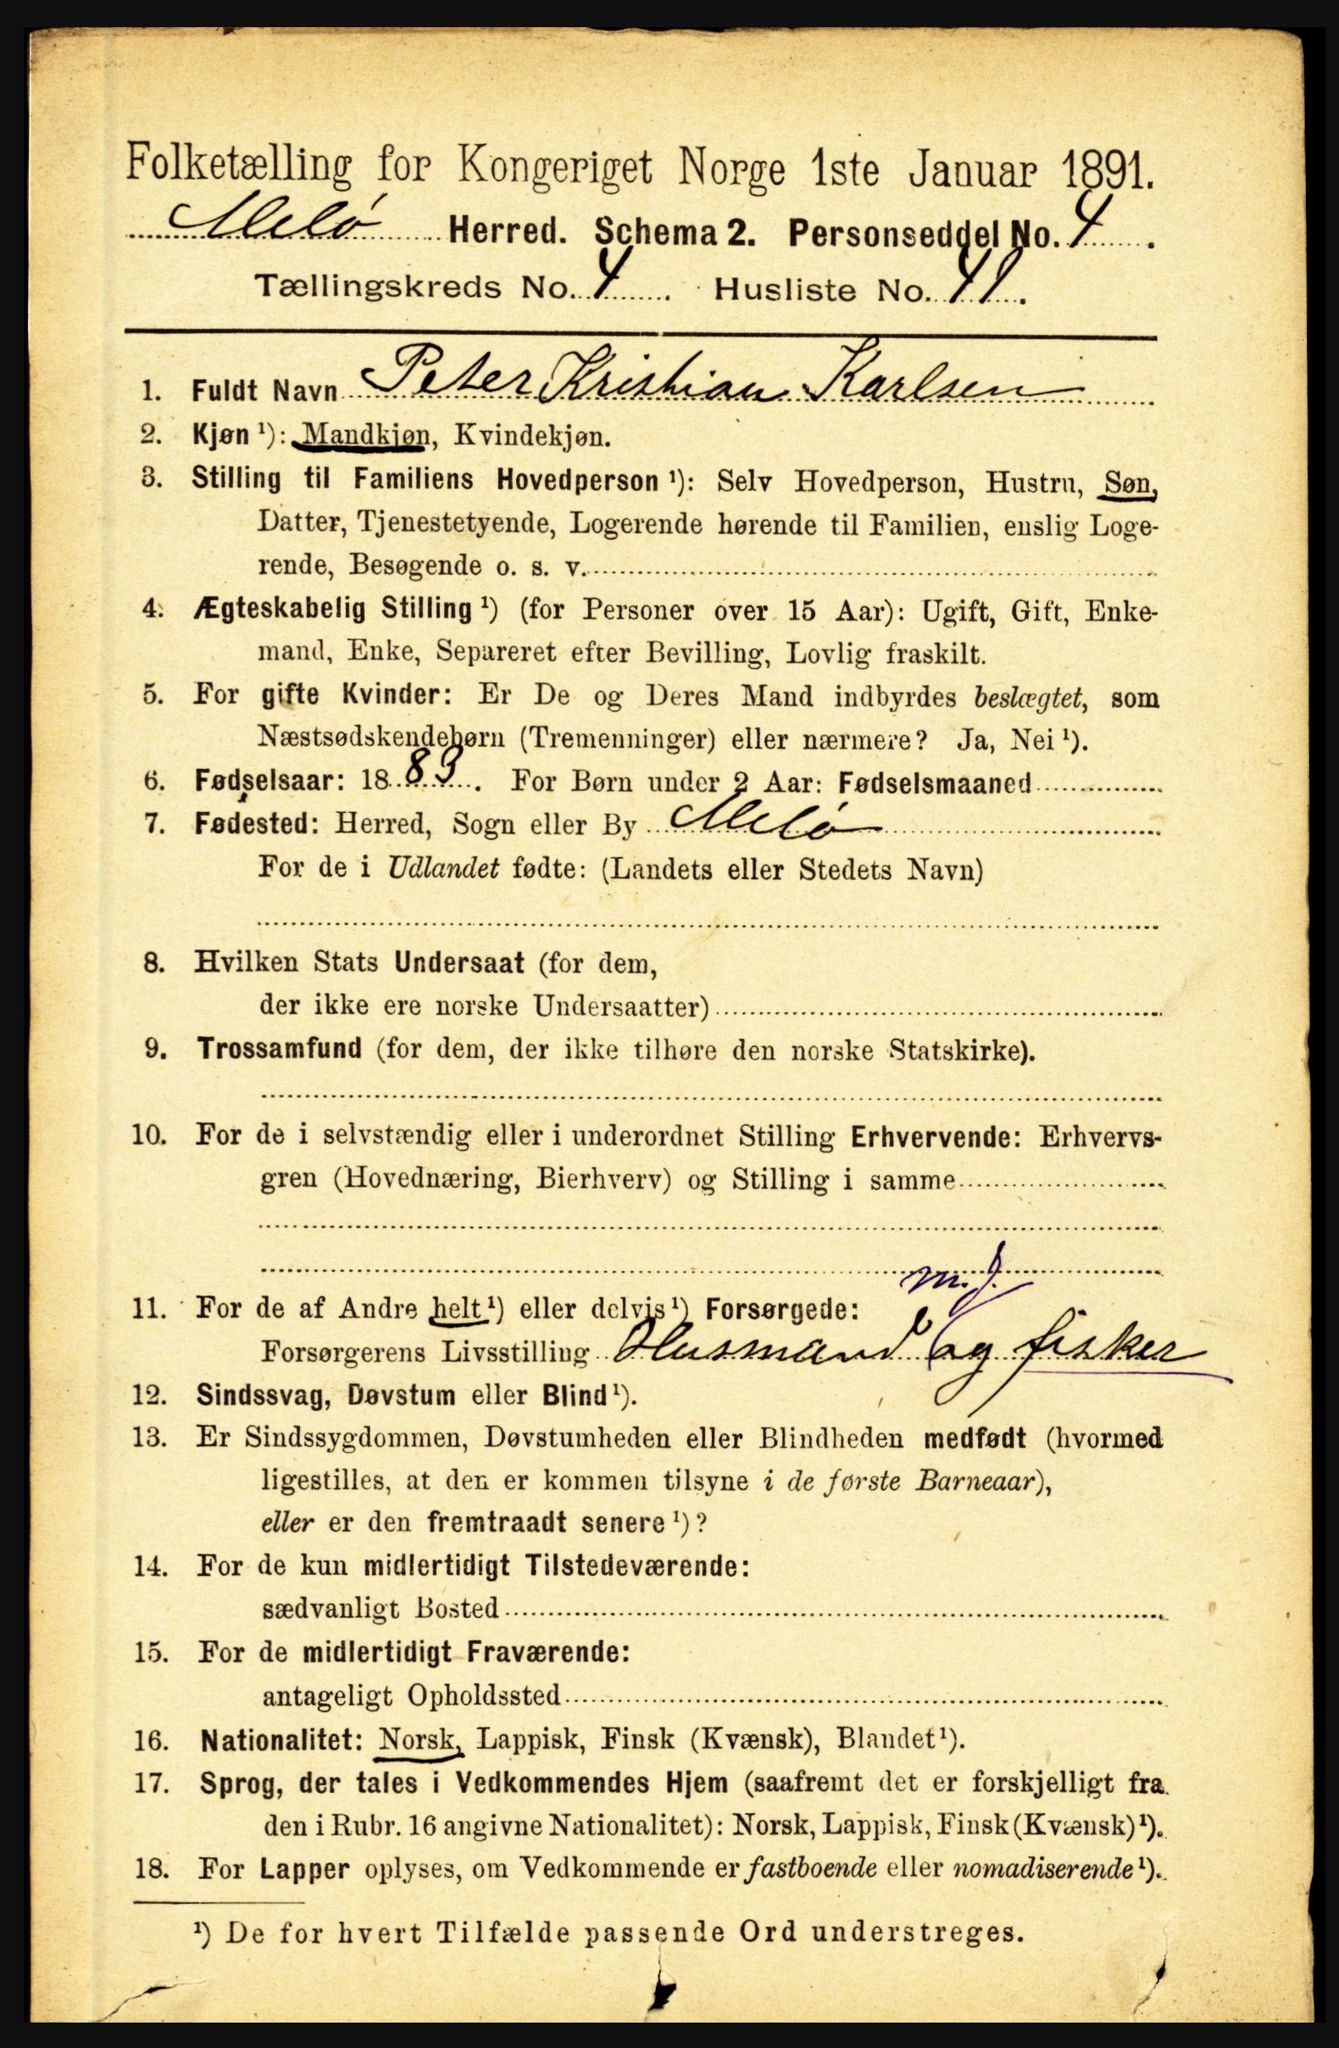 Folketælling for Kongeriget Norge 1ste Januar 1891.
Melø Herred. Schema 2. Personseddel No. 4.
Tællingskreds No. 4. Husliste No. 41.
1. Fuldt Navn Peter Kristian Karlsen
2. Kjøn ¹): Mandkjøn, Kvindekjøn.
3. Stilling til Familiens Hovedperson ¹): Selv Hovedperson, Hustru, Søn,
Datter, Tjenestetyende, Logerende hørende til Familien, enslig Loge-
rende, Besøgende o. s. v.
4. Ægteskabelig Stilling ¹) (for Personer over 15 Aar): Ugift, Gift, Enke-
mand, Enke, Separeret efter Bevilling, Lovlig fraskilt.
5. For gifte Kvinder: Er De og Deres Mand indbyrdes beslægtet, som
Næstsødskendebørn (Tremenninger) eller nærmere? Ja, Nei ¹).
6. Fødselsaar: 1883. For Børn under 2 Aar: Fødselsmaaned
7. Fødested: Herred, Sogn eller By Melø
For de i Udlandet fødte: (Landets eller Stedets Navn)
8. Hvilken Stats Undersaat (for dem,
der ikke ere norske Undersaatter)
9. Trossamfund (for dem, der ikke tilhøre den norske Statskirke).
10. For de i selvstændig eller i underordnet Stilling Erhvervende: Erhvervs-
gren (Hovednæring, Bierhverv) og Stilling i samme
m. J.
11. For de af Andre helt ¹) eller delvis ¹) Forsørgede:
Forsørgerens Livsstilling Husmand og fisker
12. Sindssvag, Døvstum eller Blind ¹).
13. Er Sindssygdommen, Døvstumheden eller Blindheden medfødt (hvormed
ligestilles, at den er kommen tilsyne i de første Barneaar),
eller er den fremtraadt senere ¹)?
14. For de kun midlertidigt Tilstedeværende:
sædvanligt Bosted
15. For de midlertidigt Fraværende:
antageligt Opholdssted
16. Nationalitet: Norsk, Lappisk, Finsk (Kvænsk), Blandet ¹).
17. Sprog, der tales i Vedkommendes Hjem (saafremt det er forskjelligt fra
den i Rubr. 16 angivne Nationalitet): Norsk, Lappisk, Finsk (Kvænsk) ¹).
18. For Lapper oplyses, om Vedkommende er fastboende eller nomadiserende ¹).
¹) De for hvert Tilfælde passende Ord understreges.